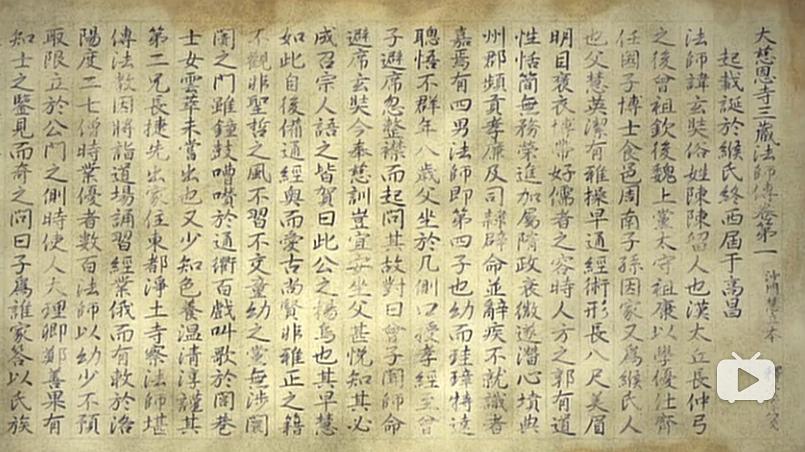 大慈恩寺三藏法師傳卷第一 沙門慧立本
起載誕於緱氏終西屆于高昌
法師諱玄奘俗姓陳陳留人也漢太丘長仲弓
之後曾祖欽後魏上黨太守祖康以學優仕齊
任國子博士食邑周南子孫因家又為緱氏人
也父慧英潔有雅操早通經術形長八尺美眉
明目褒衣博帶好儒者之容時人方之郭有道
性恬簡無務榮進加屬隋政衰微遂潛心墳典
州郡頻貢孝廉及司隸辟命並辭疾不就識者
嘉焉有四男法師即第四子也幼而珪璋特達
聰悟不群年八歲父坐於几側口授孝經至曾
子避席忽整襟而起問其故對曰曾子聞師命
避席玄奘今奉慈訓豈宜安坐父甚悅知其必
成召宗人語之皆賀曰此公之揚烏也其早慧
如此自後備通經奧而愛古尚賢非雅正之籍
不觀非聖哲之風不習不交童幼之黨無涉闤
闠之門雖鐘鼓嘈囋於通衢百戲叫歌於閭巷
士女雲萃未嘗出也又少知色養溫清淳謹其
第二兄長捷先出家住東都淨土寺察法師堪
傳法教因將詣道場誦習經業俄而有敕於洛
陽度二七僧時業優者數百法師以幼少不預
取限立於公門之側時使人大理卿鄭善果有
知士之鑒見而奇之問曰子為誰家答以氏族